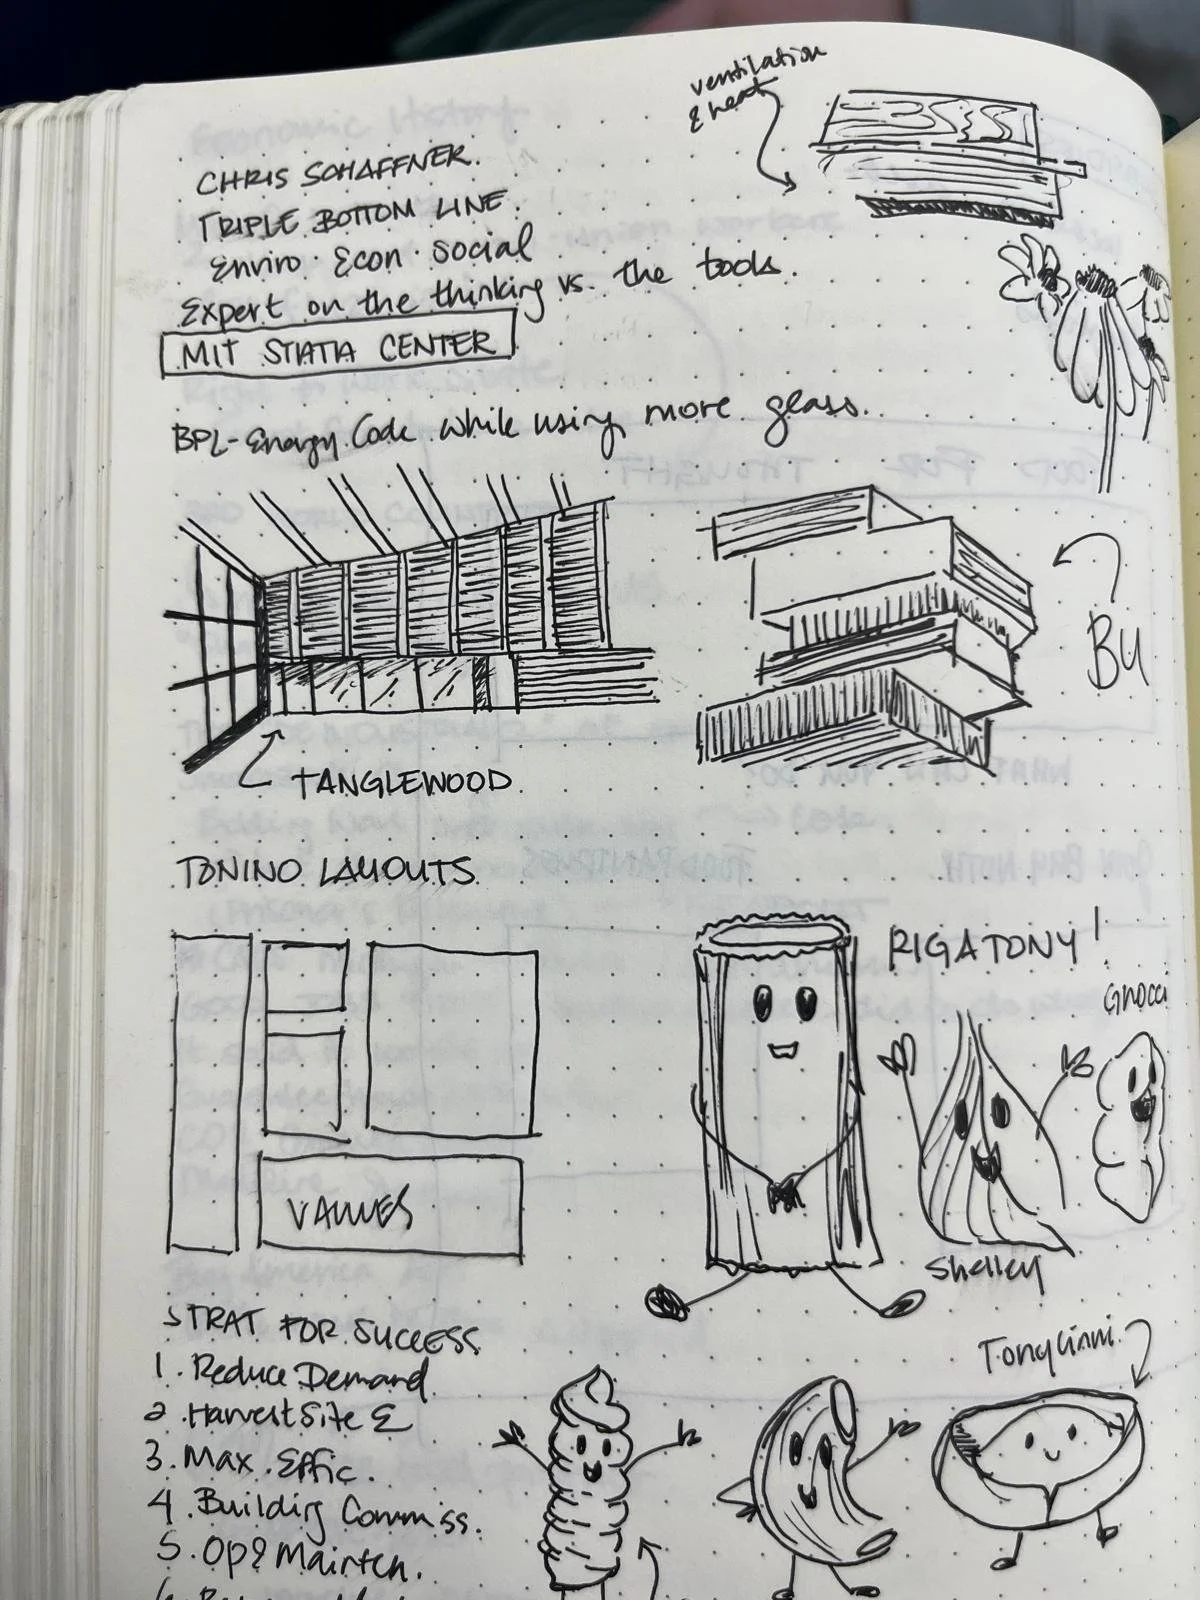 ventilation
& heat
CHRIS SCHAFFNER.
TRIPLE BOTTOM LINE.
Enviro · Econ · social
Expert on the thinking vs. the tools.
MIT STATA CENTER
BPL - Energy Code while using more glass.
BU
TANGLEWOOD
TONINO LAYOUTS
RIGATONY!
Gnocci
VALUES
Shelley
STRAT FOR SUCCESS
Tonyccinni.
1. Reduce Demand
2. Harvest Site E
3. Max. Effic.
4. Building Commiss.
5. Op & Mainten.